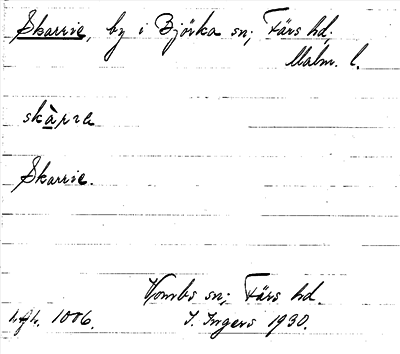 Skarrie, by i Björka sn; Färs hd,
Malm. l.
skàpra
Skarrie.
Vombs sn; Färs hd.
1006. I. Ingers 1930.